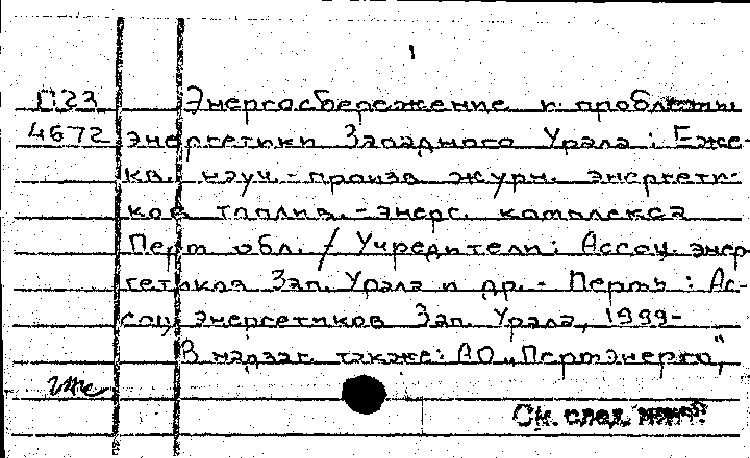 1
П23 Энергосбережение и проблемы
4672 энергетики Западного Урала : Еже-
кв. науч.-произв журн. энергети-
ков топлив.-энерг. комплекса
Перм обл. / Учредители: Ассоц. энер-
гетиков Зап. Урала и др. - Пермь : Ас-
соц. энергетиков Зап. Урала, 1999-
В надзаг. также: АО „Пермэнерго",
См. след.